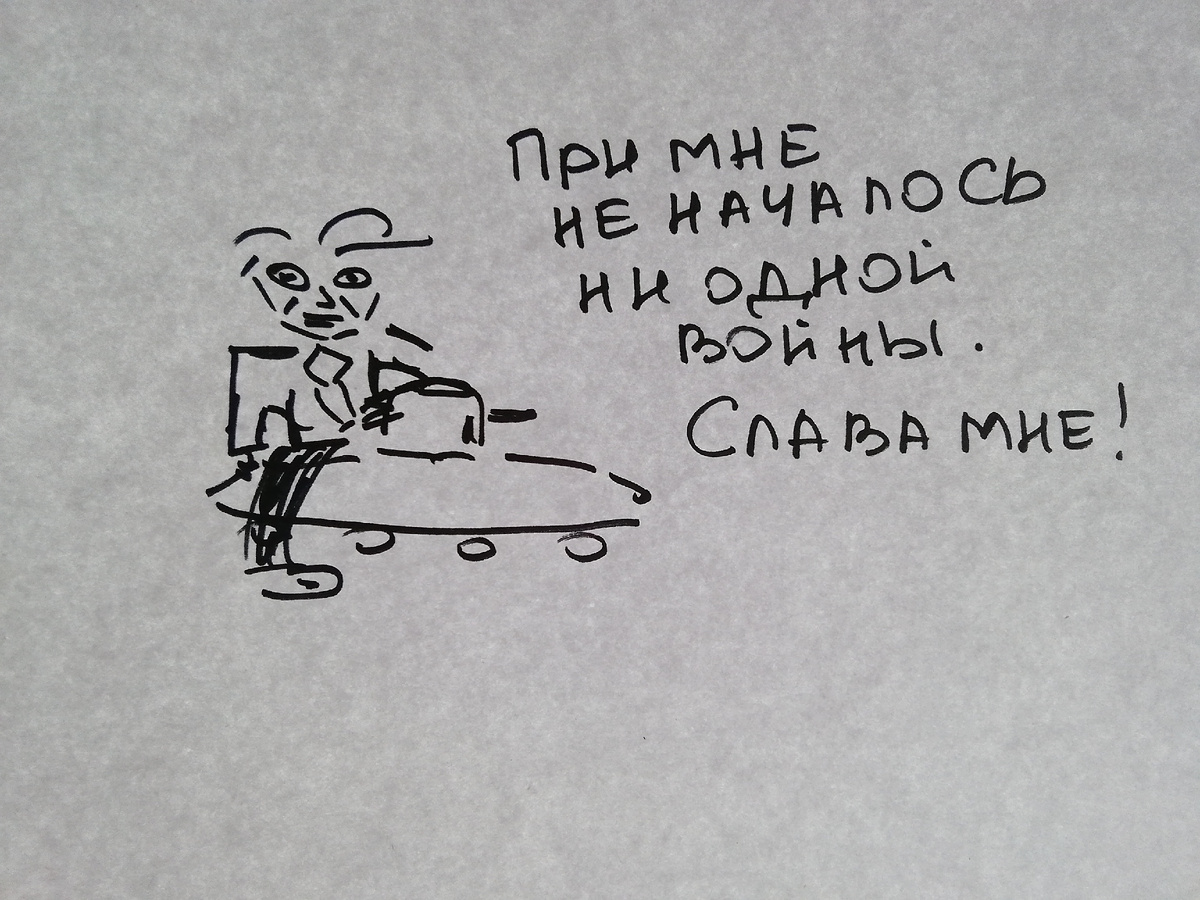 При мне
не началось
ни одной
войны.
Слава мне!